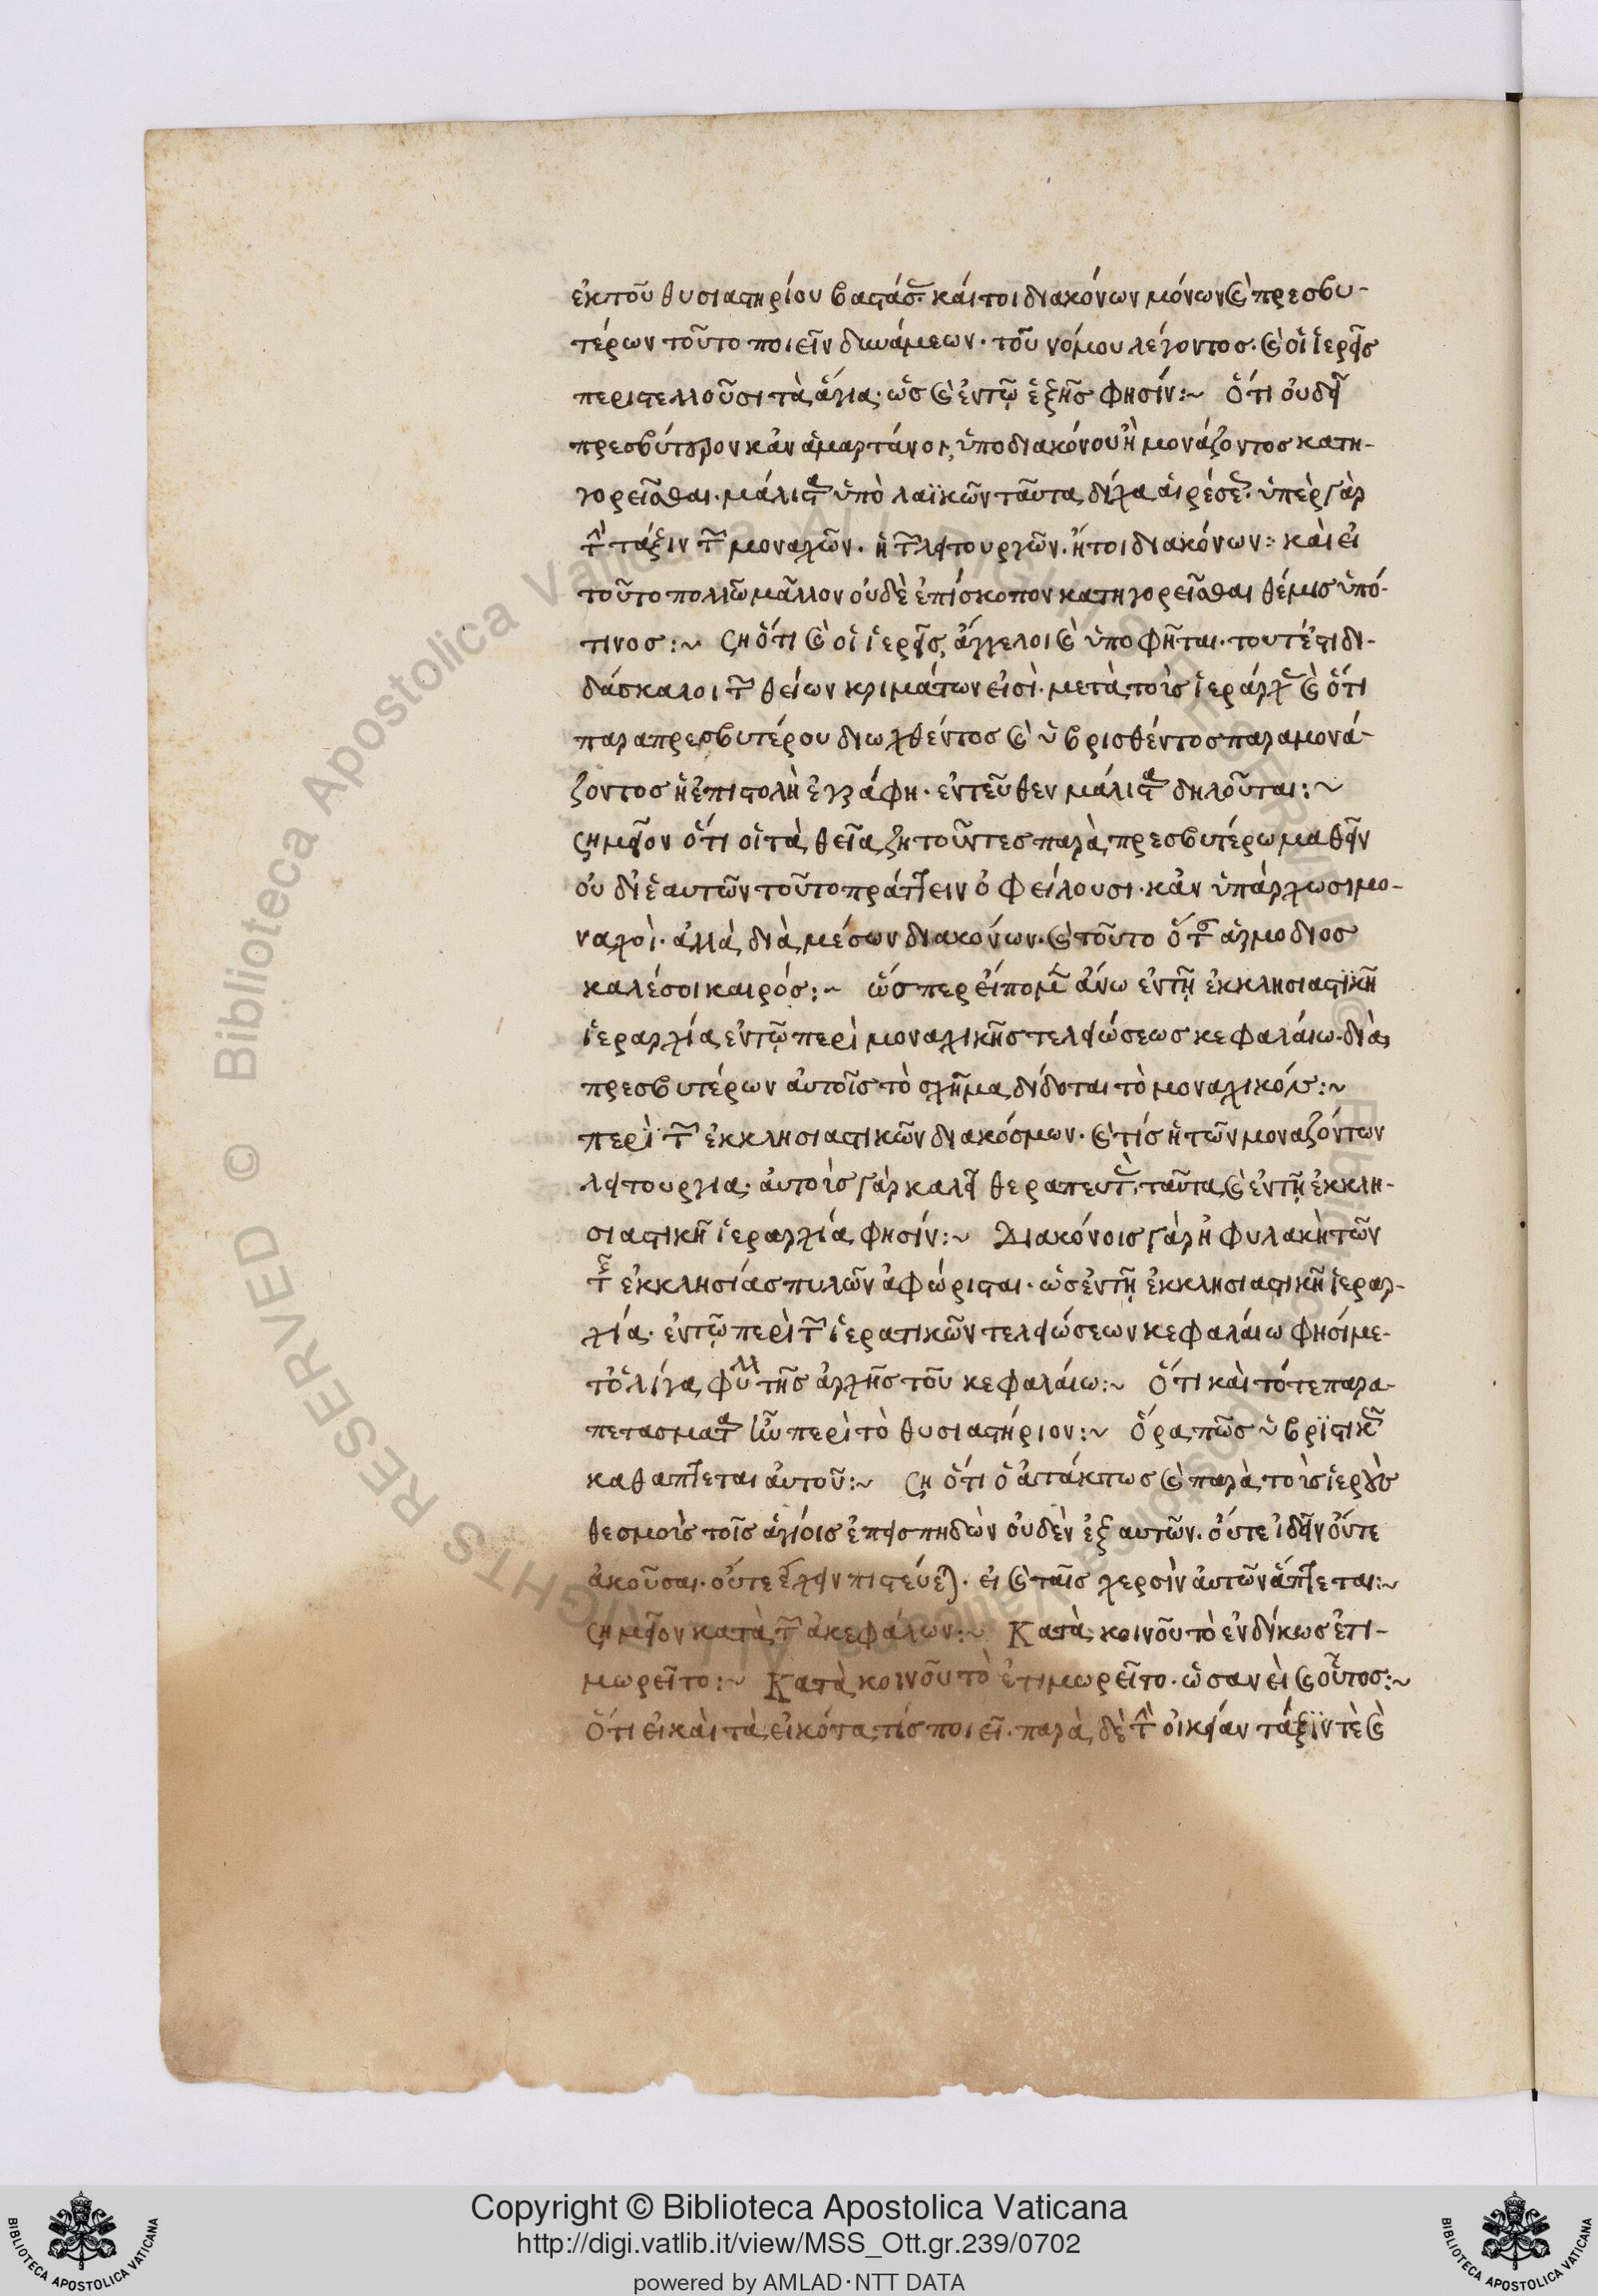 ἐκ τοῦ θυσιαστηρίου βαστάσ. καίτοι διακόνων μόνων καὶ πρεσβυ-
τέρων τοῦτο ποιεῖν δυνάμεων· τοῦ νόμου λέγοντος· καὶ οἱ ἱερεῖς
περιστελλοῦσι τὰ ἅγια· ὡς καὶ ἐν τῷ ἑξῆς φησίν:~ Ὅτι οὐδὲ
πρεσβύτερον κἂν ἁμαρτάνοι, ὑπὸ διακόνου ἢ μονάζοντος κατη-
γορεῖσθαι· μάλιστα ὑπὸ λαϊκῶν ταῦτα δίχα αἱρέσε· ὑπὲρ γὰρ
τὴν τάξιν τῶν μοναχῶν· ἢ τῶν λειτουργῶν· ἤτοι διακόνων: καὶ εἰ
τοῦτο πολλῶ μᾶλλον οὐδὲ ἐπίσκοπον κατηγορεῖσθαι θέμις ὑπό-
τινος:~ ση ὅτι καὶ οἱ ἱερεῖς, ἄγγελοι καὶ ὑποφῆται· τουτέστι δι-
δάσκαλοι τῶν θείων κριμάτων εἰσὶ· μετὰ τοὺς ἱεράρχ καὶ ὅτι
παρὰ πρεσβυτέρου διωχθέντος καὶ ὑβρισθέντος παρὰ μονά-
ζοντος ἡ ἐπιστολὴ ἐγράφη· ἐντεῦθεν μάλιστα δηλοῦται:~
σημεῖον ὅτι οἱ τὰ θεῖα ζητοῦντες παρὰ πρεσβυτέρω μαθεῖν
οὐ δι' ἑαυτῶν τοῦτο πράττειν ὀφείλουσι· κἂν ὑπάρχωσι μο-
ναχοὶ· ἀλλὰ διὰ μέσων διακόνων· καὶ τοῦτο ὅτ ἁρμόδιος
καλέσοι καιρός:~ ὥσπερ εἴπομεν ἄνω ἐν τῇ ἐκκλησιαστικῆ
ἱεραρχία ἐν τῷ περὶ μοναχικῆς τελειώσεως κεφαλαίω· διὰ
πρεσβυτέρων αὐτοῖς τὸ σχῆμα δίδοται τὸ μοναχικόν:~
περὶ τῶν ἐκκλησιαστικῶν διακόσμων· καὶ τίς ἡ τῶν μοναζόντων
λειτουργία· αὐτοὺς γὰρ καλεῖ θεραπευτὰς· ταῦτα καὶ ἐν τῇ ἐκκλη-
σιαστικῆ ἱεραρχία φησίν:~ Διακόνοις γὰρ ἡ φυλακὴ τῶν
τῆς ἐκκλησίας πυλῶν ἀφώρισται· ὡς ἐν τῇ ἐκκλησιαστικῆ ἱεραρ-
χία· ἐν τῷ περὶ τῶν ἱερατικῶν τελειώσεων κεφαλαίω φησί με-
τ' ὀλίγα φύλλ τῆς ἀρχῆς τοῦ κεφαλαίω:~ Ὅτι καὶ τότε παρα-
πετάσματα ἦν περὶ τὸ θυσιαστήριον:~ Ὅρα πῶς ὑβριστικῶς
καθάπτεται αὐτοῦ:~ ση ὅτι ὁ ἀτάκτως καὶ παρὰ τοὺς ἱεροὺς
θεσμοὺς τοῖς ἁγίοις ἐπεισπηδῶν οὐδὲν ἐξ αὐτῶν· οὔτε ἰδεῖν οὔτε
ἀκοῦσαι· οὔτε ἔχειν πιστεύεται· εἰ καὶ ταῖς χερσὶν αὐτῶν ἅπτεται:~
σημεῖον κατὰ τῶν ἀκεφάλων:~ Κατὰ κοινοῦ τὸ ἐνδίκως ἐτι-
μωρεῖτο:~ Κατὰ κοινοῦ τὸ ἐτιμωρεῖτο· ὡσανεὶ καὶ οὗτος:~
Ὅτι εἰ καὶ τὰ εἰκότα τίς ποιεῖ· παρὰ δὲ τὴν οἰκείαν τάξιν τὲ καὶ
Copyright © Biblioteca Apostolica Vaticana
http://digi.vatlib.it/view/MSS_Ott.gr.239/0702
powered by AMLAD·NTT DATA
BIBLIOTECA APOSTOLICA VATICANA
BIBLIOTECA APOSTOLICA VATICANA